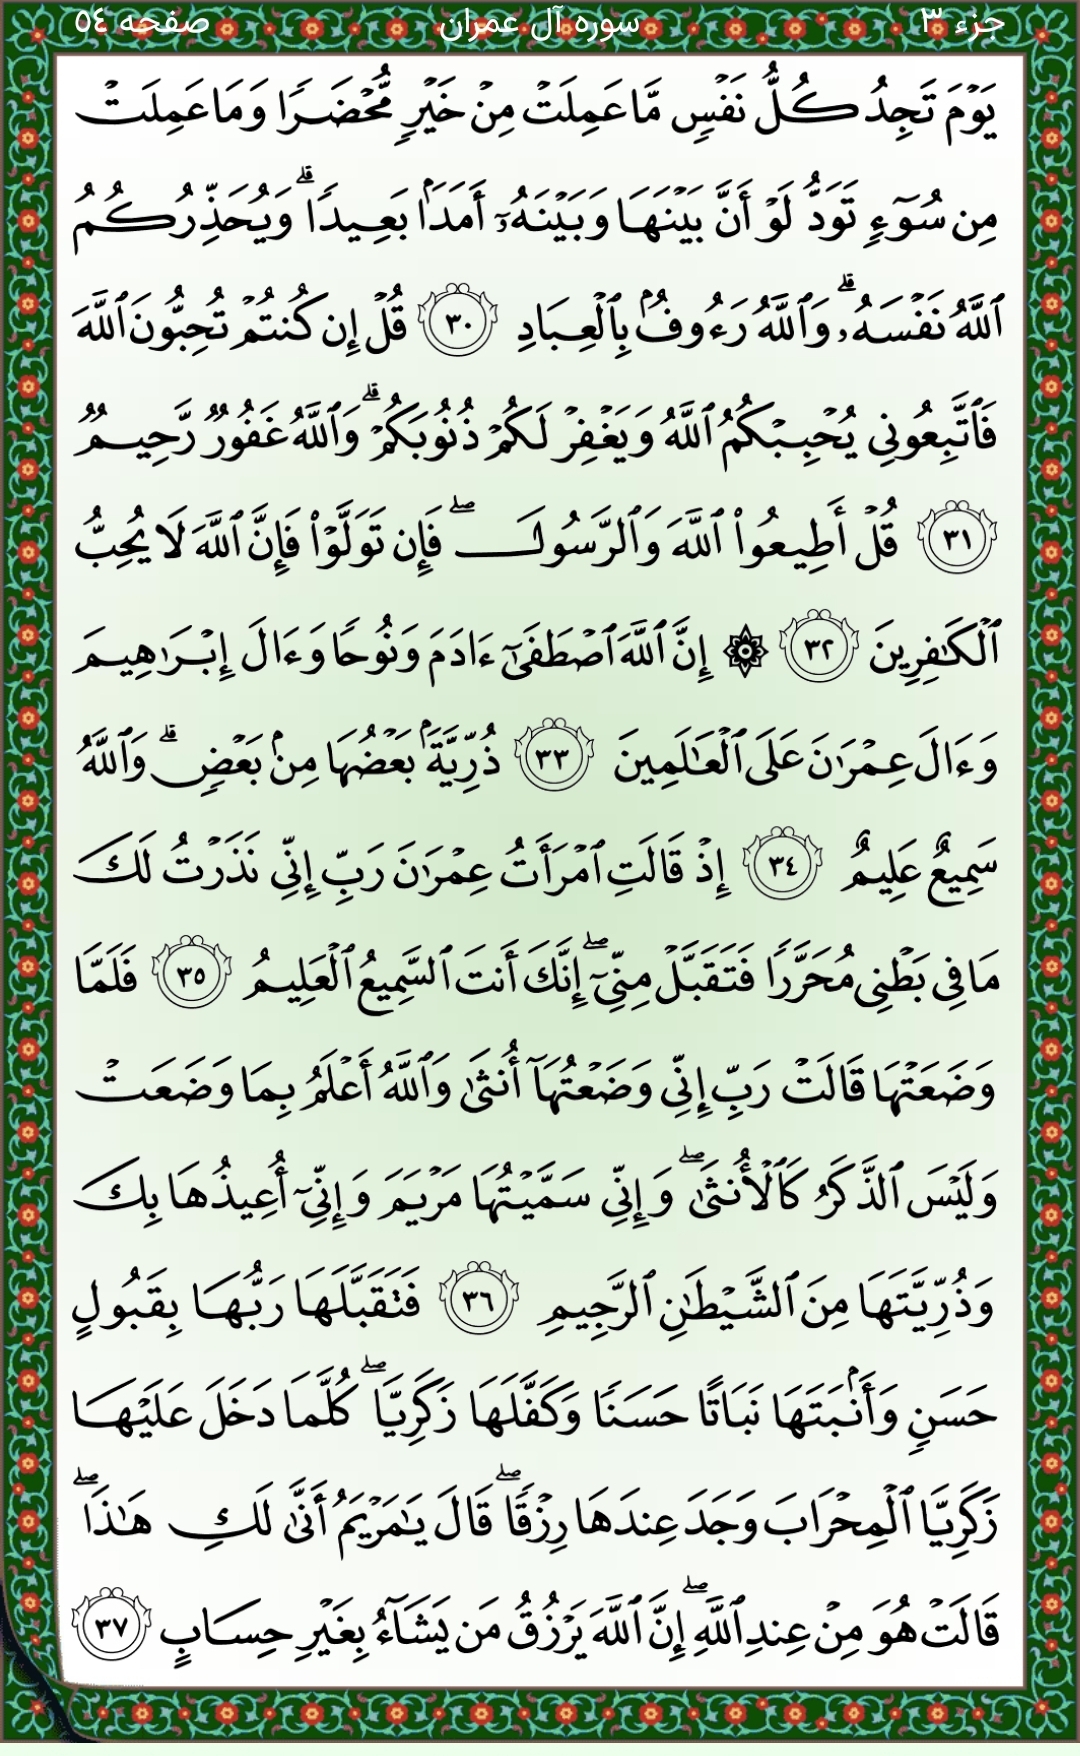 جزء ٣ سوره آل عمران صفحه ٥٤
يَوْمَ تَجِدُ كُلُّ نَفْسٍ مَّا عَمِلَتْ مِنْ خَيْرٍ مُّحْضَرًا وَمَا عَمِلَتْ
مِن سُوٓءٍ تَوَدُّ لَوْ أَنَّ بَيْنَهَا وَبَيْنَهُۥٓ أَمَدًۢا بَعِيدًا ۗ وَيُحَذِّرُكُمُ
ٱللَّهُ نَفْسَهُۥ ۗ وَٱللَّهُ رَءُوفٌۢ بِٱلْعِبَادِ ٣٠ قُلْ إِن كُنتُمْ تُحِبُّونَ ٱللَّهَ
فَٱتَّبِعُونِي يُحْبِبْكُمُ ٱللَّهُ وَيَغْفِرْ لَكُمْ ذُنُوبَكُمْ ۗ وَٱللَّهُ غَفُورٌ رَّحِيمٌ
٣١ قُلْ أَطِيعُوا۟ ٱللَّهَ وَٱلرَّسُولَ ۖ فَإِن تَوَلَّوْا۟ فَإِنَّ ٱللَّهَ لَا يُحِبُّ
ٱلْكَٰفِرِينَ ٣٢ ۞ إِنَّ ٱللَّهَ ٱصْطَفَىٰٓ ءَادَمَ وَنُوحًا وَءَالَ إِبْرَٰهِيمَ
وَءَالَ عِمْرَٰنَ عَلَى ٱلْعَٰلَمِينَ ٣٣ ذُرِّيَّةًۢ بَعْضُهَا مِنۢ بَعْضٍ ۗ وَٱللَّهُ
سَمِيعٌ عَلِيمٌ ٣٤ إِذْ قَالَتِ ٱمْرَأَتُ عِمْرَٰنَ رَبِّ إِنِّي نَذَرْتُ لَكَ
مَا فِي بَطْنِي مُحَرَّرًا فَتَقَبَّلْ مِنِّيٓ ۖ إِنَّكَ أَنتَ ٱلسَّمِيعُ ٱلْعَلِيمُ ٣٥ فَلَمَّا
وَضَعَتْهَا قَالَتْ رَبِّ إِنِّي وَضَعْتُهَآ أُنثَىٰ وَٱللَّهُ أَعْلَمُ بِمَا وَضَعَتْ
وَلَيْسَ ٱلذَّكَرُ كَٱلْأُنثَىٰ ۖ وَإِنِّي سَمَّيْتُهَا مَرْيَمَ وَإِنِّيٓ أُعِيذُهَا بِكَ
وَذُرِّيَّتَهَا مِنَ ٱلشَّيْطَٰنِ ٱلرَّجِيمِ ٣٦ فَتَقَبَّلَهَا رَبُّهَا بِقَبُولٍ
حَسَنٍ وَأَنۢبَتَهَا نَبَاتًا حَسَنًا وَكَفَّلَهَا زَكَرِيَّا ۖ كُلَّمَا دَخَلَ عَلَيْهَا
زَكَرِيَّا ٱلْمِحْرَابَ وَجَدَ عِندَهَا رِزْقًا ۖ قَالَ يَٰمَرْيَمُ أَنَّىٰ لَكِ هَٰذَا ۖ
قَالَتْ هُوَ مِنْ عِندِ ٱللَّهِ ۖ إِنَّ ٱللَّهَ يَرْزُقُ مَن يَشَآءُ بِغَيْرِ حِسَابٍ ٣٧